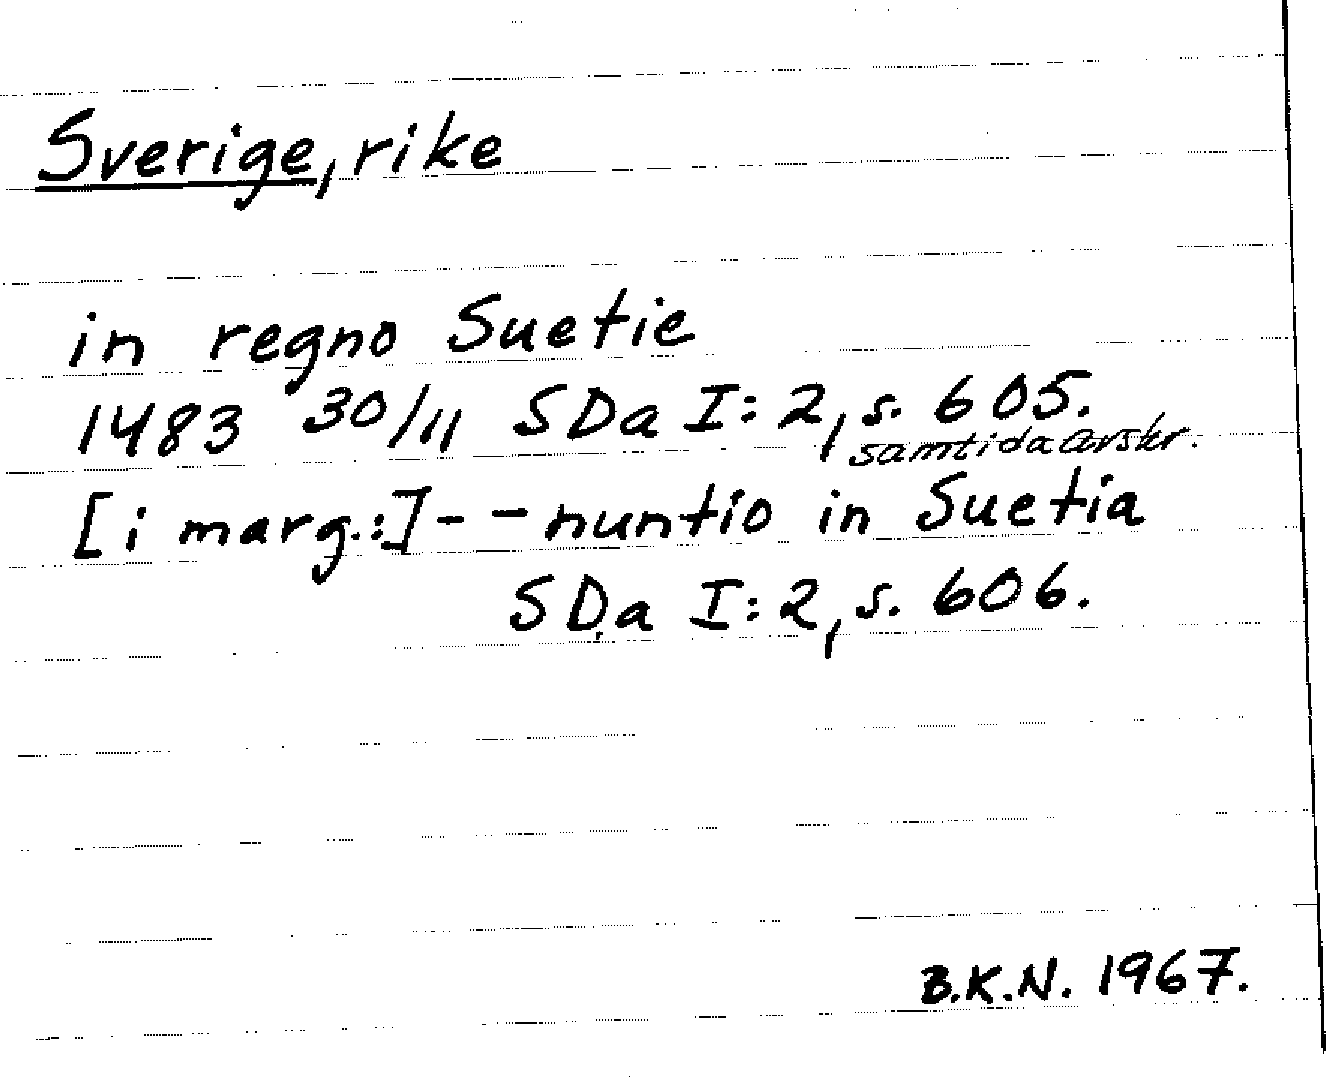 Sverige, rike
in regno Suetie
1483 30/11 SDa I:2, s. 605.
samtida avskr.
[i marg.:] - - nuntio in Suetia
SDa I:2, s. 606.
B.K.N. 1967.